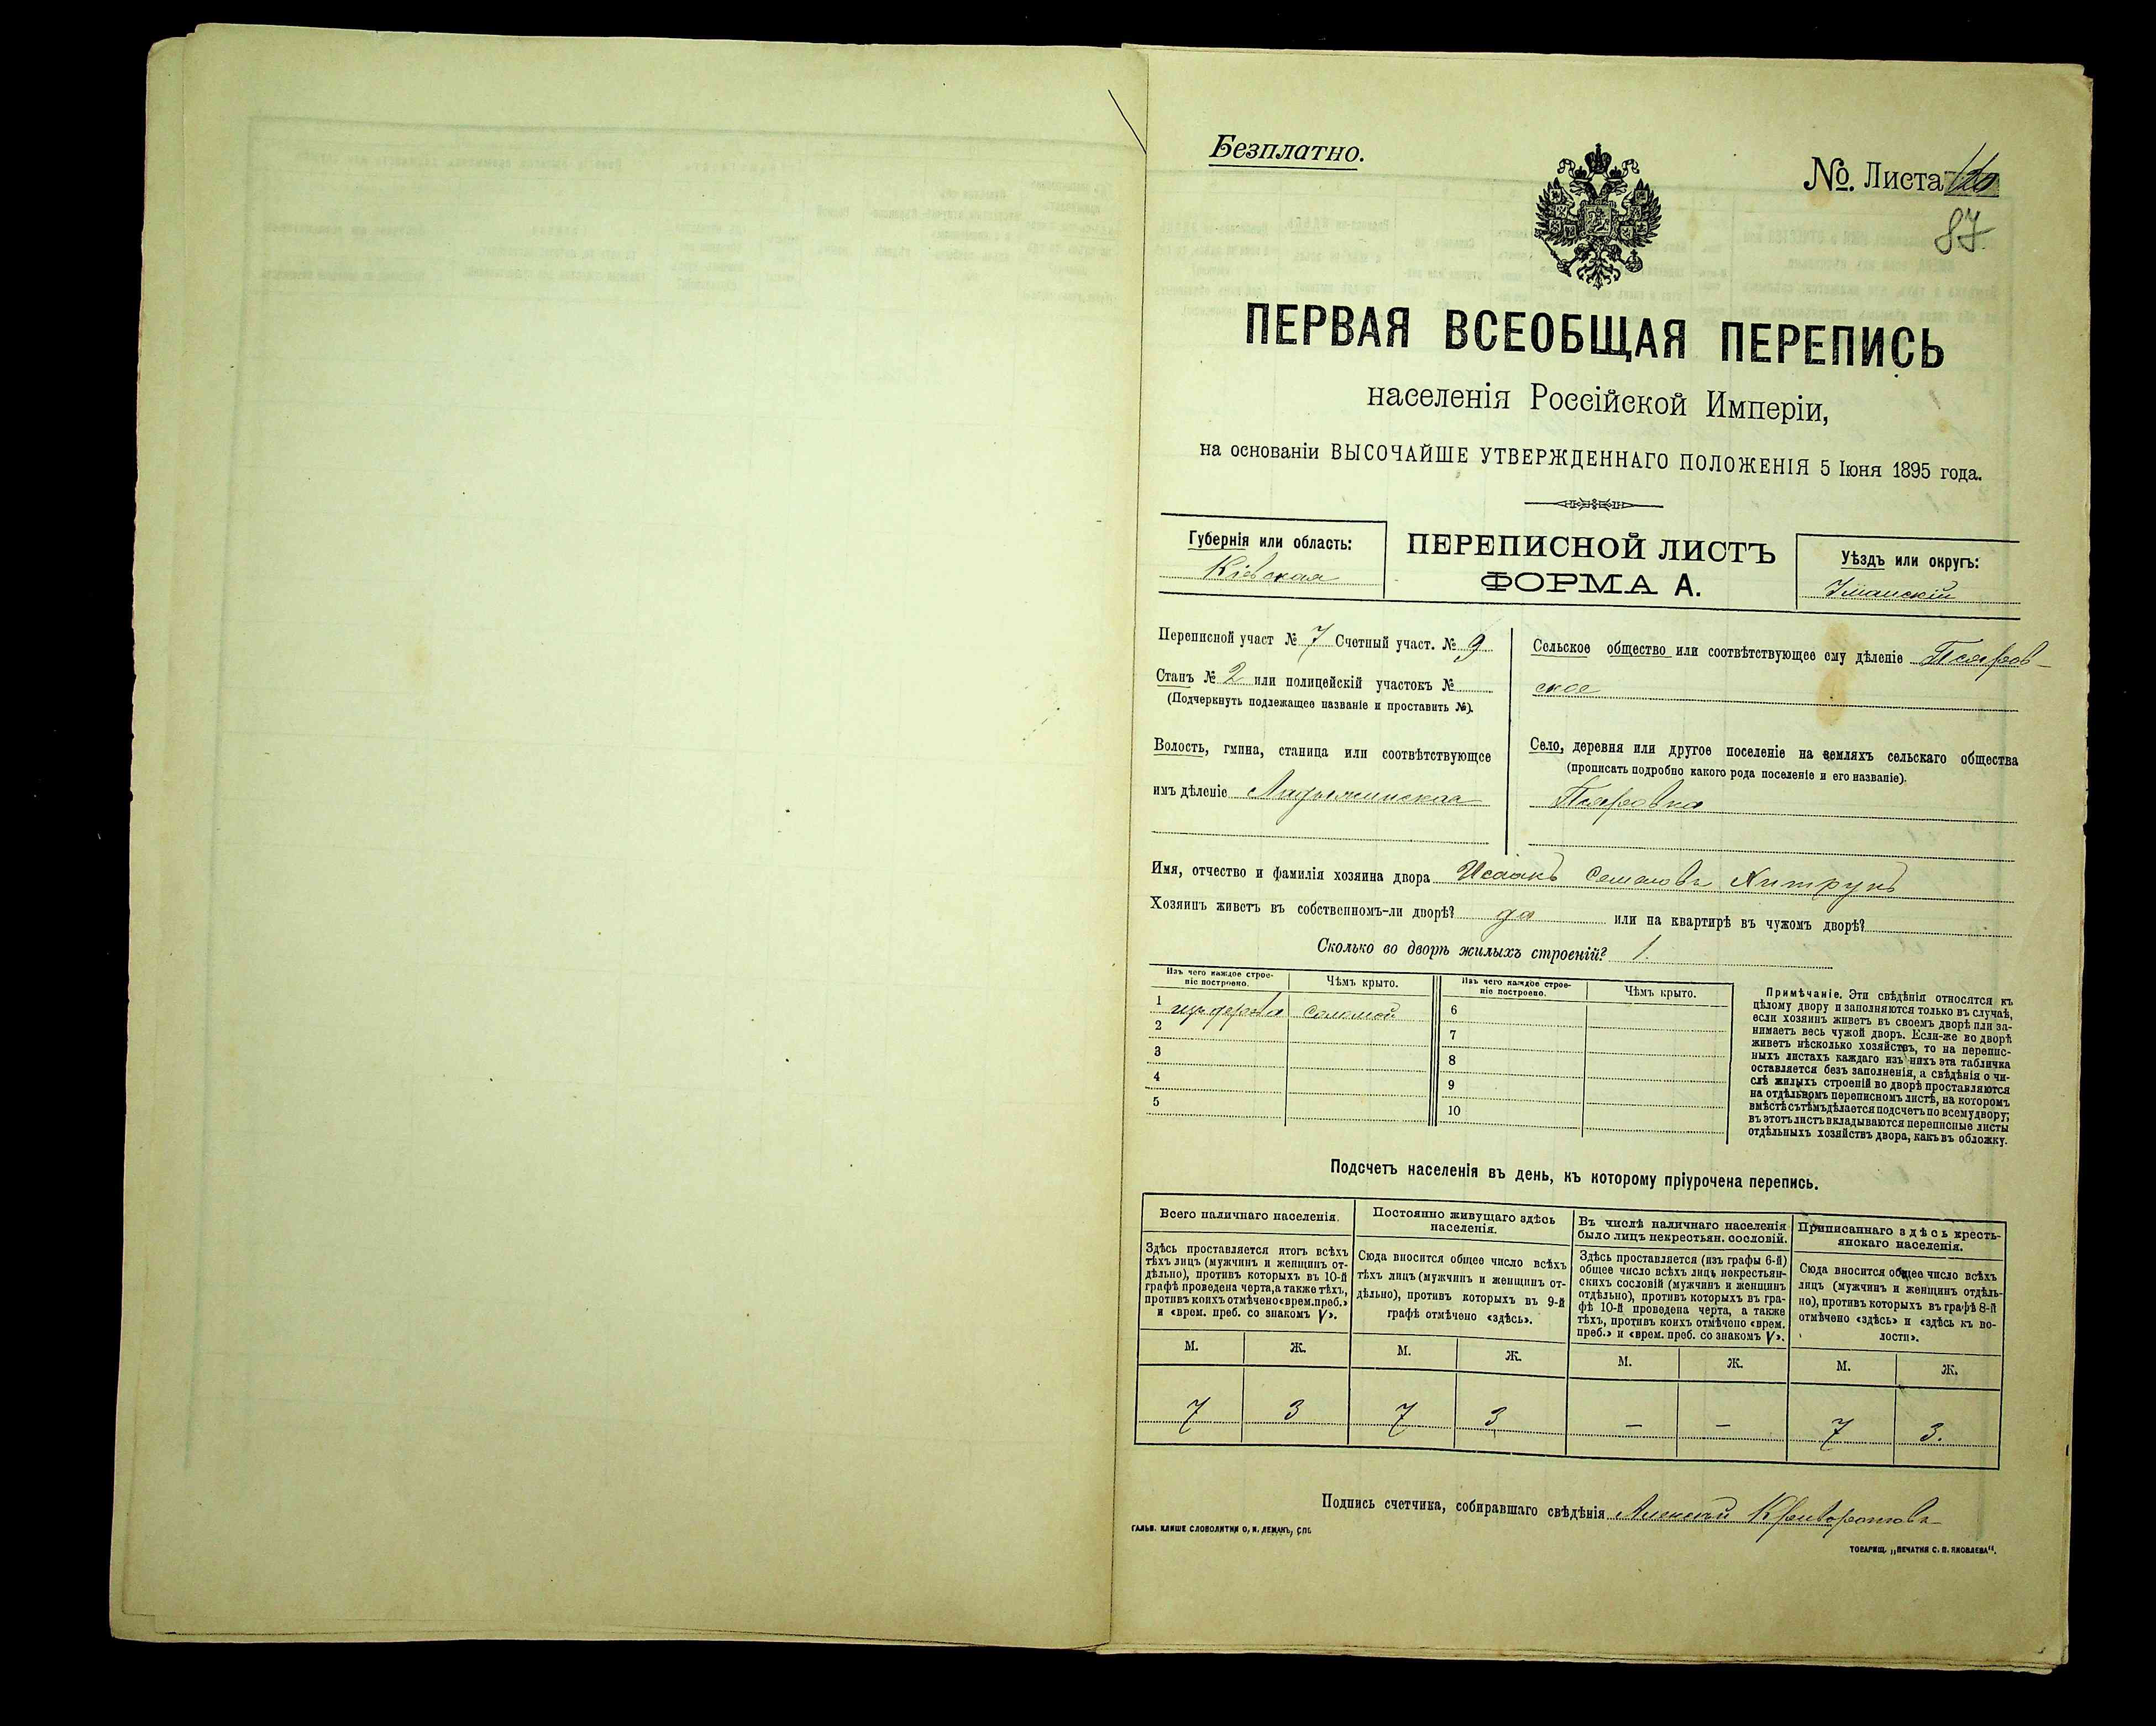 Безплатно.
№. Листа
87
ПЕРВАЯ ВСЕОБЩАЯ ПЕРЕПИСЬ
населенія Россійской Имперіи,
на основаніи ВЫСОЧАЙШЕ УТВЕРЖДЕННАГО ПОЛОЖЕНІЯ 5 Іюня 1895 года.
Губернія или область:
Кіевская
ПЕРЕПИСНОЙ ЛИСТЪ
ФОРМА А.
Уѣздъ или округъ:
Уманскій
Переписной участ № 7 Счетный участ. № 9
Станъ № 2 или полицейскій участокъ №
(Подчеркнуть подлежащее названіе и проставить №).
Волость, гмина, станица или соотвѣтствующее
имъ дѣленіе Ладыжинская
Сельское общество или соотвѣтствующее ему дѣленіе Псяров-
ское
Село, деревня или другое поселеніе на земляхъ сельскаго общества
(прописать подробно какого рода поселеніе и его названіе).
Псяровка
Имя, отчество и фамилія хозяина двора Исаакъ Семеновъ Хитрукъ
Хозяинъ живетъ въ собственномъ-ли дворѣ? да или на квартирѣ въ чужомъ дворѣ?
Сколько во дворѣ жилыхъ строеній? 1.
Изъ чего каждое строе-
ніе построено.
Чѣмъ крыто.
Изъ чего каждое строе-
ніе построено.
Чѣмъ крыто.
1 изъ дерева соломой
2
3
4
5
6
7
8
9
10
Примѣчаніе. Эти свѣдѣнія относятся къ
цѣлому двору и заполняются только въ случаѣ,
если хозяинъ живетъ въ своемъ дворѣ или за-
нимаетъ весь чужой дворъ. Если-же во дворѣ
живетъ нѣсколько хозяйствъ, то на перепис-
ныхъ листахъ каждаго изъ нихъ эта табличка
оставляется безъ заполненія, а свѣдѣнія о чи-
слѣ жилыхъ строеній во дворѣ проставляются
на отдѣльномъ переписномъ листѣ, на которомъ
вмѣстѣ съ тѣмъ дѣлается подсчетъ по всему двору;
въ этотъ листъ вкладываются переписные листы
отдѣльныхъ хозяйствъ двора, какъ въ обложку.
Подсчетъ населенія въ день, къ которому пріурочена перепись.
Всего наличнаго населенія.
Здѣсь проставляется итогъ всѣхъ
тѣхъ лицъ (мужчинъ и женщинъ от-
дѣльно), противъ которыхъ въ 10-й
графѣ проведена черта, а также тѣхъ,
противъ коихъ отмѣчено «врем. преб.»
и «врем. преб. со знакомъ V».
Постоянно живущаго здѣсь
населенія.
Сюда вносится общее число всѣхъ
тѣхъ лицъ (мужчинъ и женщинъ от-
дѣльно), противъ которыхъ въ 9-й
графѣ отмѣчено «здѣсь».
Въ числѣ наличнаго населенія
было лицъ некрестьян. сословій.
Здѣсь проставляется (изъ графы 6-й)
общее число всѣхъ лицъ некрестьян-
скихъ сословій (мужчинъ и женщинъ
отдѣльно), противъ которыхъ въ гра-
фѣ 10-й проведена черта, а также
тѣхъ, противъ коихъ отмѣчено «врем.
преб.» и «врем. преб. со знакомъ V».
Приписаннаго здѣсь кресть-
янскаго населенія.
Сюда вносится общее число всѣхъ
лицъ (мужчинъ и женщинъ отдѣль-
но), противъ которыхъ въ графѣ 8-й
отмѣчено «здѣсь» и «здѣсь къ во-
лости».
М. Ж. М. Ж. М. Ж. М. Ж.
7 3 7 3 – – 7 3.
Подпись счетчика, собиравшаго свѣдѣнія Алексѣй
ГАЛЬВ. КЛИШЕ СЛОВОЛИТНИ О. И. ЛЕМАНЪ, СПБ
ТОВАРИЩ. „ПЕЧАТНЯ С. П. ЯКОВЛЕВА“.